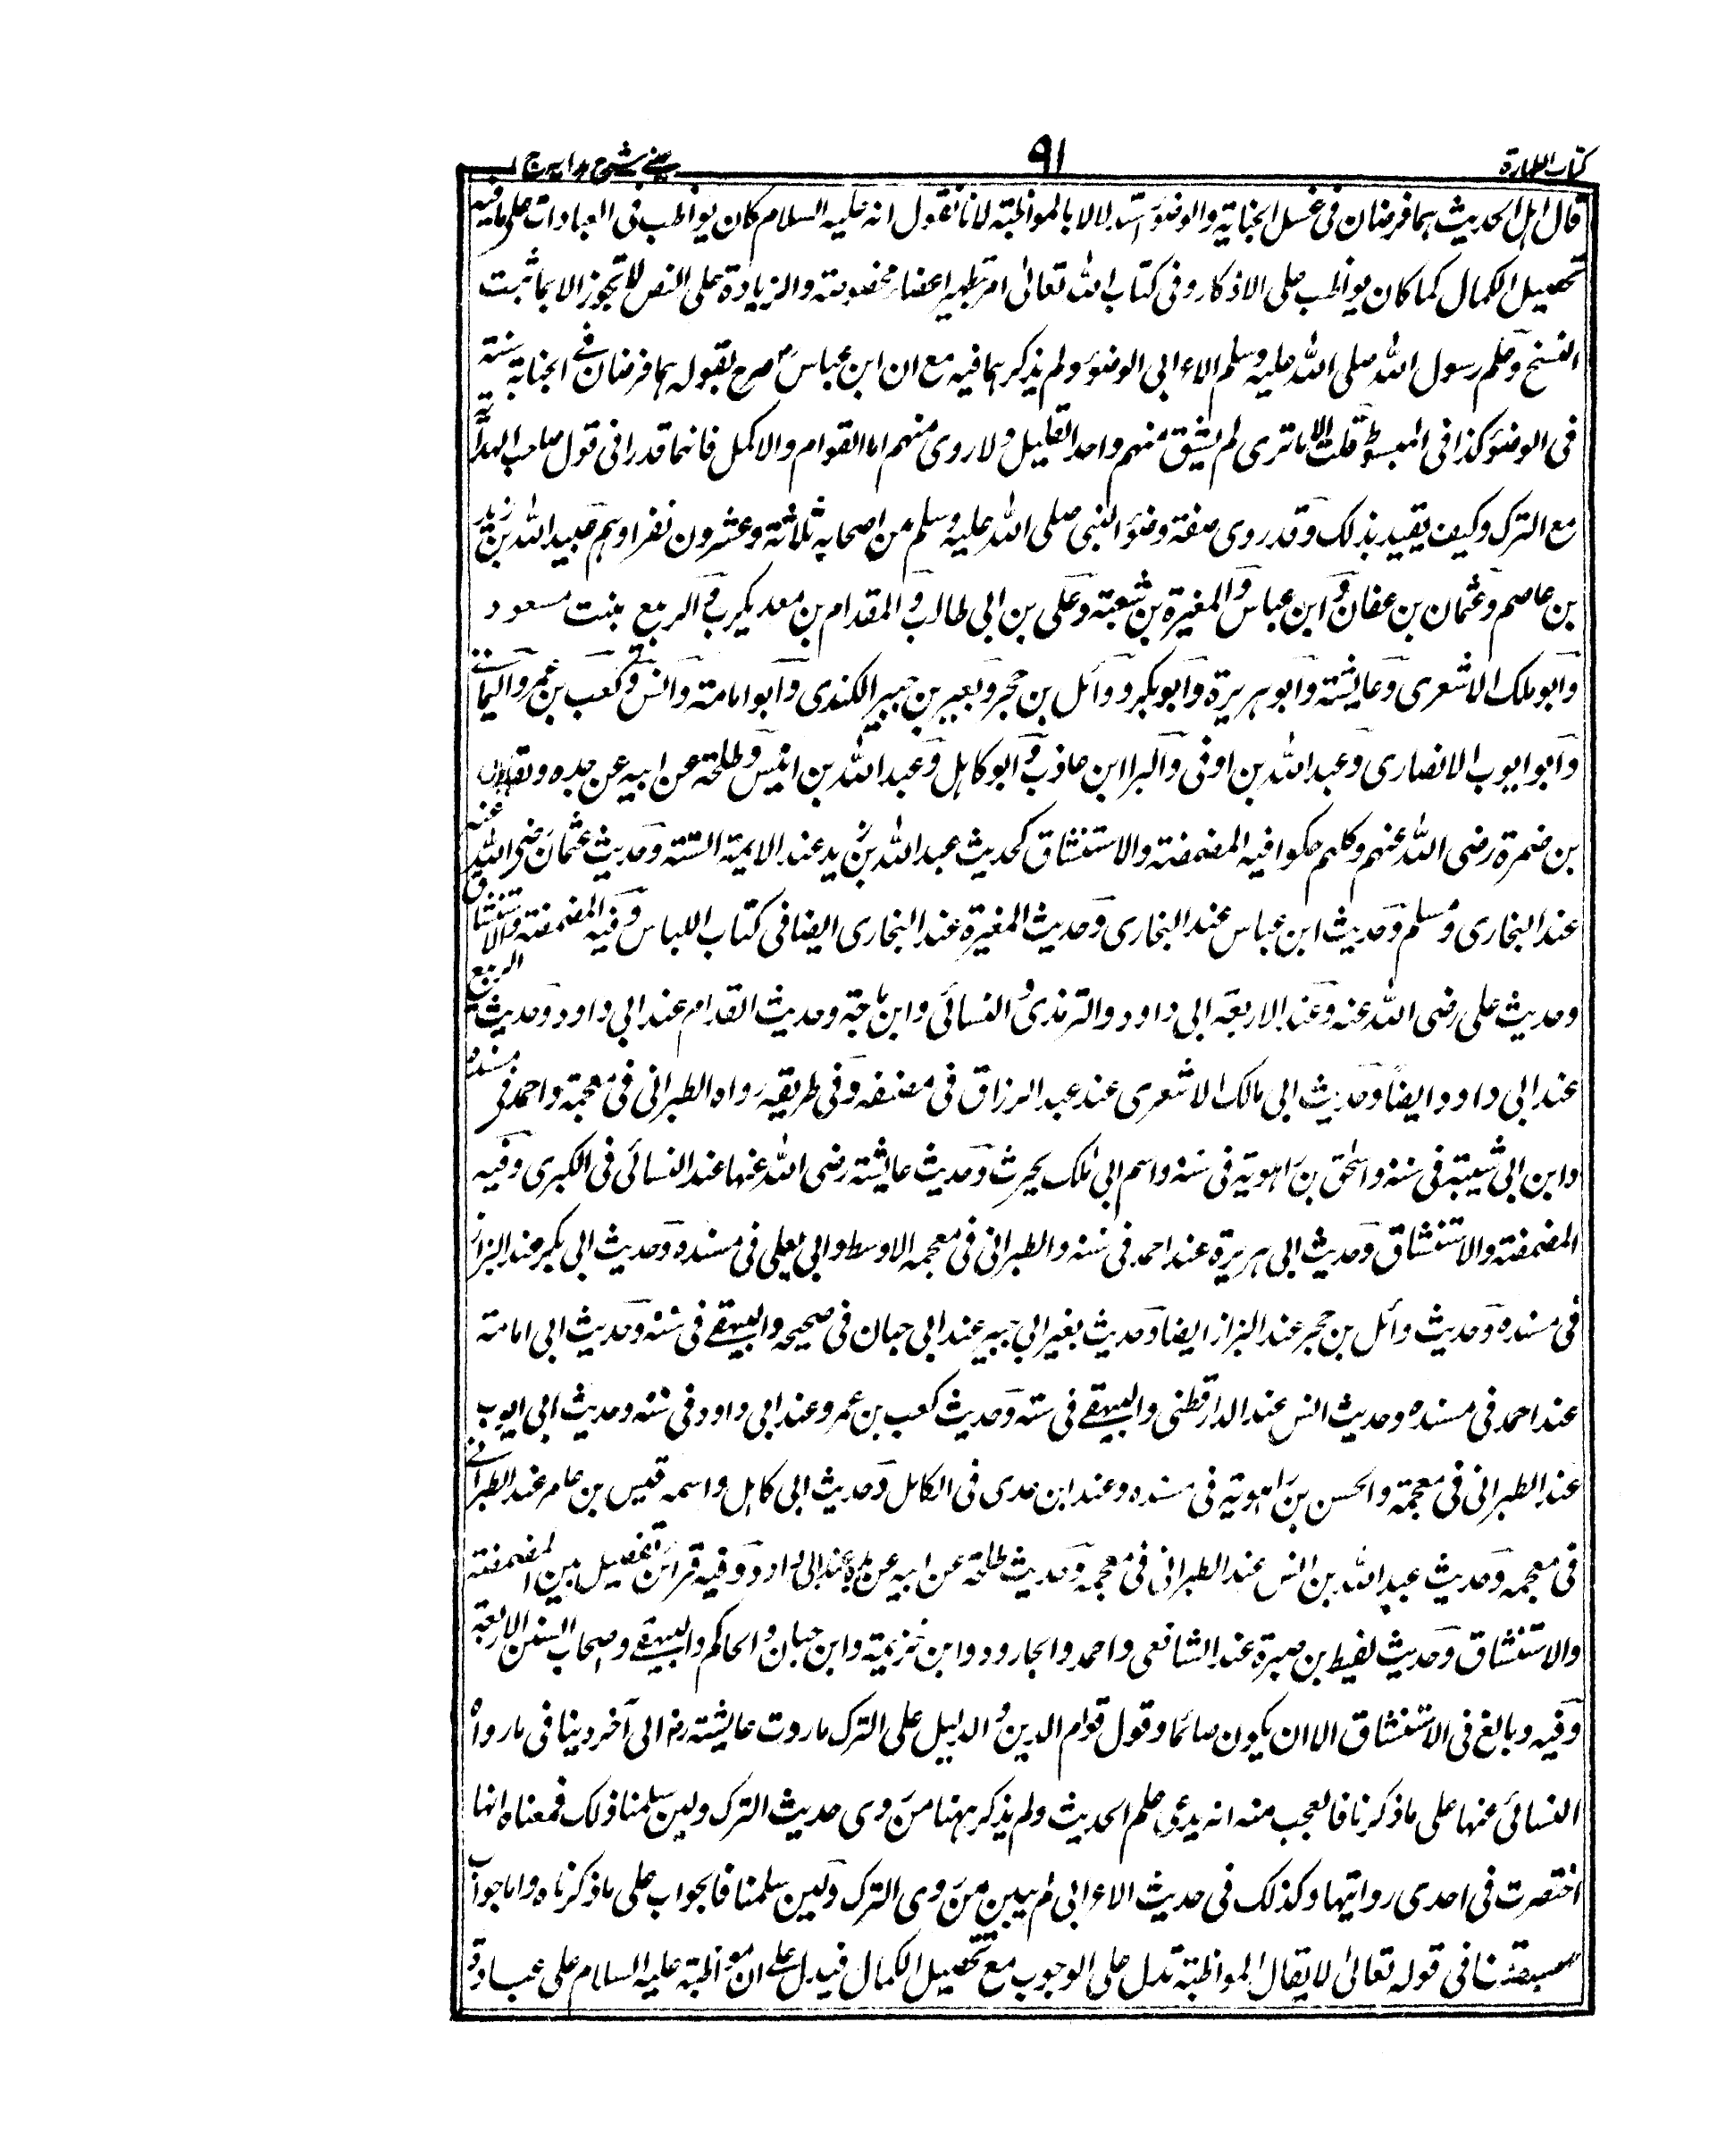 كتاب الطهارة
٩١
عيني شرح هدايه ج ١
قال اهل الحديث هما فرضان فى غسل الجنابة والوضوء استدلالا بالمواظبة لانا نقول انه عليه السلام كان يواظب فى العبادات على ما فيه
تحصيل الكمال كما كان يواظب على الاذكار وفى كتاب الله تعالى امر بتطهير اعضاء مخصوصة والزيادة على النص لا تجوز الا بما ثبت
النسخ وعلم رسول الله صلى الله عليه وسلم الاعرابى الوضوء ولم يذكرهما فيه مع ان ابن عباس صرح بقوله هما فرضان فى الجنابة سنة
فى الوضوء كذا فى المبسوط قلت الا ما ترى لم يشق منهم واحد القليل ولا روى منهم اما القوام والاكمل فانهما قدرا فى قول صاحب الهداية
مع الترك وكيف يقيد بذلك وقد روى صفة وضوء النبى صلى الله عليه وسلم من اصحابه ثلاثة وعشرون نفرا وهم عبيد الله بن زيد
بن عاصم وعثمان بن عفان وابن عباس والمغيرة بن شعبة وعلى بن ابى طالب والمقدام بن معديكرب والربيع بنت مسعود
وابو ملك الاشعرى وعايشة وابو هريرة وابو بكر ووائل بن حجر وبعير بن جبير الكندى وابو امامة وانس وكعب بن عمرو اليمانى
وابو ايوب الانصارى وعبد الله بن اوفى والبرا ابن عاذب وابو كاهل وعبد الله بن انيس وطلحة عن ابيه عن جده ولقيط
بن ضمرة رضى الله عنهم وكلهم حكوا فيه المضمضة والاستنشاق كحديث عبد الله بن زيد عند الايمة الستة وحديث عثمان رضى الله عنه
عند البخارى ومسلم وحديث ابن عباس عند البخارى وحديث المغيرة عند البخارى ايضا فى كتاب اللباس وفيه المضمضة والاستنشاق
وحديث على رضى الله عنه وعند الاربعة ابى داود والترمذى والنسائى وابن ماجة وحديث القدام عند ابى داود وحديث الربيع
عند ابى داود ايضا وحديث ابى مالك الاشعرى عند عبد الرزاق فى مصنفه وفى طريقه رواه الطبرانى فى معجمة واحمد فى مسنده
وابن ابى شيبة فى سننه واسحق بن راهوية فى سننه واسم ابى ملك يحرث وحديث عايشة رضى الله عنها عند النسائى فى الكبرى وفيه
المضمضة والاستنشاق وحديث ابى هريرة عند احمد فى سننه والطبرانى فى معجمه الاوسط وابى يعلى فى مسنده وحديث ابى بكر عند البزاز
فى مسنده وحديث وائل بن حجر عند البزاز ايضا وحديث بغير ابى جبير عند ابى حبان فى صحيحه والبيهقى فى سننه وحديث ابى امامة
عند احمد فى مسنده وحديث انس عند الدارقطنى والبيهقى فى سننه وحديث كعب بن عمرو عند ابى داود فى سننه وحديث ابى ايوب
عند الطبرانى فى معجمة والحسن بن راهوية فى مسنده وعند ابن عدى فى الكامل وحديث ابى كاهل واسمه قيس بن عامر عند الطبرانى
فى معجمه وحديث عبد الله بن انس عند الطبرانى فى معجمه وحديث طلحة عن ابيه عن جده عند ابى داود وفيه قرائن تفصيل بين المضمضة
والاستنشاق وحديث لقيط بن صبرة عند الشافعى واحمد والجارود وابن خزيمة وابن حبان والحاكم والبيهقى واصحاب السنن الاربعة
وفيه وبالغ فى الاستنشاق الا ان يكون صائما وقول قوام الدين والدليل على الترك ما روت عايشة رض الى آخره ينافى ما رواه
النسائى عنها على ما ذكرنا فالعجب منه انه يدعى علم الحديث ولم يذكر ههنا من روى حديث الترك ولين سلمنا ذلك فمعناه انها
اختصرت فى احدى روايتها وكذلك فى حديث الاعرابى لم يبين من روى الترك ولين سلمنا فالجواب على ما ذكرناه واما جواب
سبقنا فى قوله تعالى لا يقال المواظبة تدل على الوجوب مع تحصيل الكمال فيدل على ان مواظبته عليه السلام على عبادة